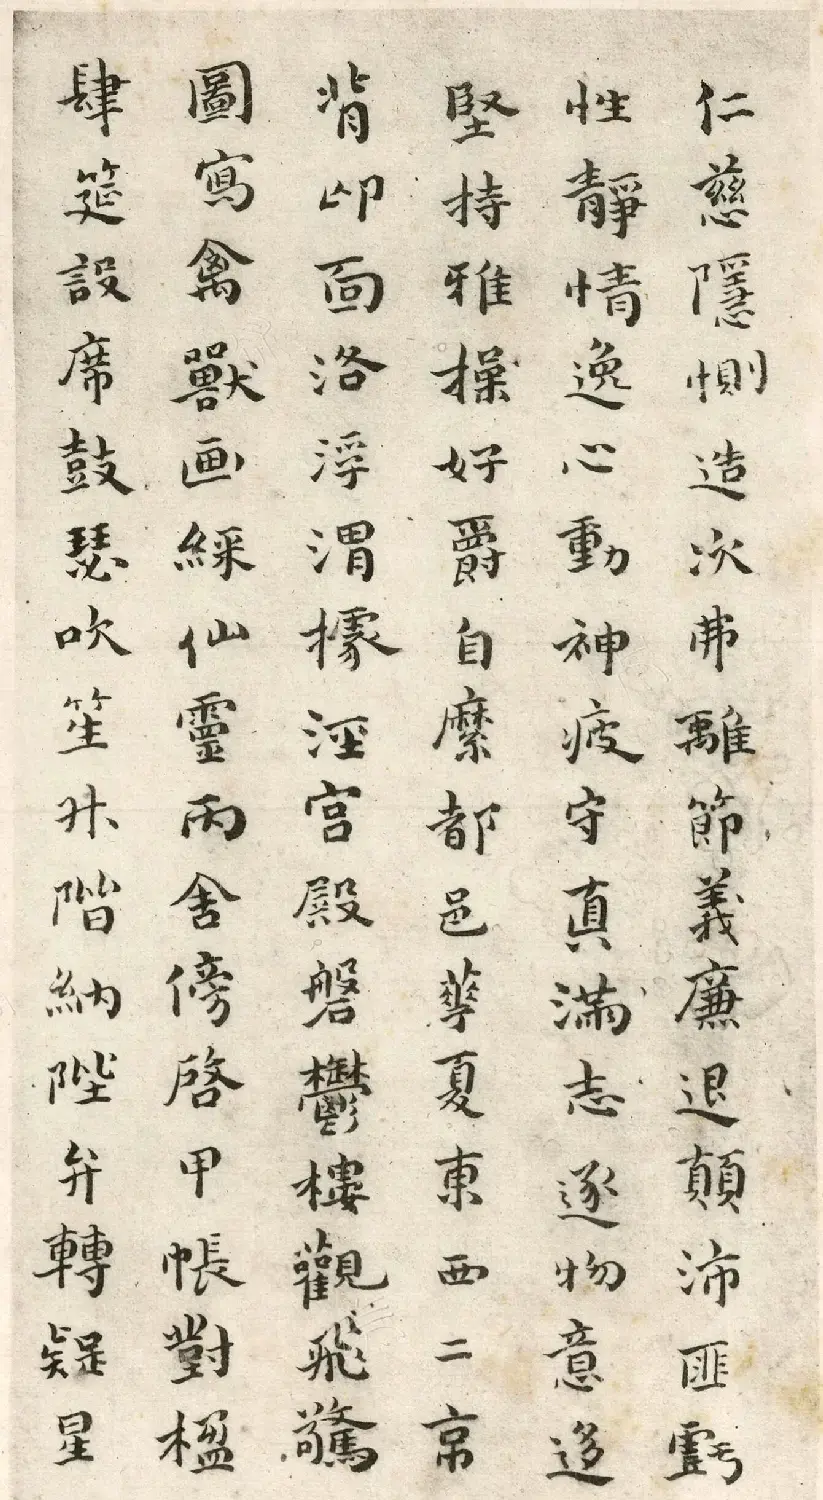 仁慈隱惻造次弗離節義廉退顛沛匪虧
性靜情逸心動神疲守真滿志逐物意移
堅持雅操好爵自縻都邑華夏東西二京
背邙面洛浮渭據涇宮殿磐鬱樓觀飛驚
圖寫禽獸画綵仙靈丙舍傍啓甲帳對楹
肆筵設席鼓瑟吹笙升階納陛弁轉疑星